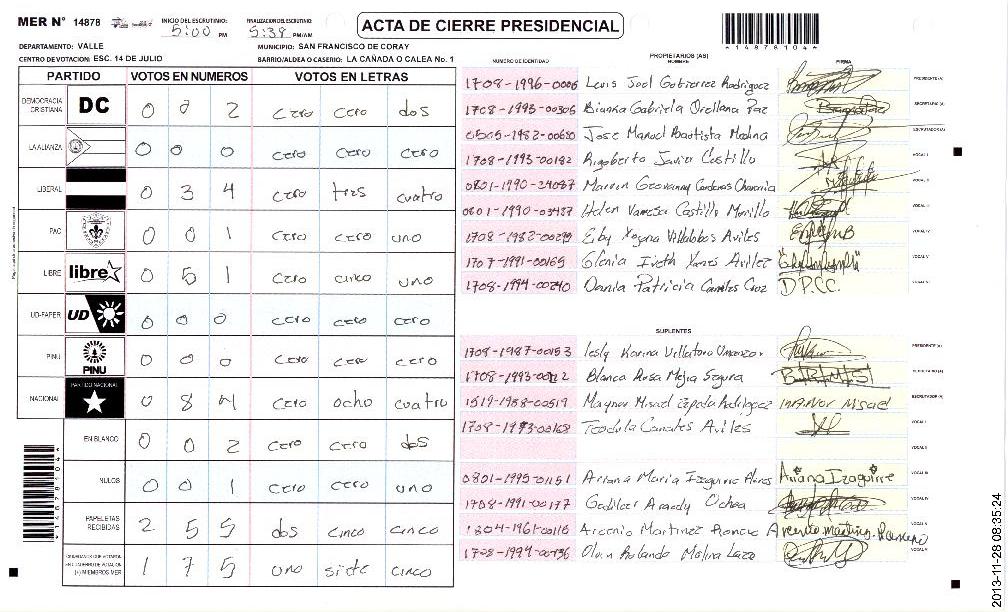 MER N° 14878 INICIO DEL ESCRUTINIO: 5:00 PM FINALIZACION DEL ESCRUTINIO: 5:38 PM/AM ACTA DE CIERRE PRESIDENCIAL
*14878104*
DEPARTAMENTO: VALLE MUNICIPIO: SAN FRANCISCO DE CORAY
CENTRO DE VOTACION: ESC. 14 DE JULIO BARRIO/ALDEA O CASERIO: LA CAÑADA O CALEA No. 1
PARTIDO VOTOS EN NUMEROS VOTOS EN LETRAS
DEMOCRACIA CRISTIANA DC 0 0 2 cero cero dos
LA ALIANZA 0 0 0 cero cero cero
LIBERAL 0 3 4 cero tres cuatro
PAC 0 0 1 cero cero uno
LIBRE libre 0 5 1 cero cinco uno
UD-FAPER UD 0 0 0 cero cero cero
PINU PINU 0 0 0 cero cero cero
NACIONAL PARTIDO NACIONAL 0 8 4 cero ocho cuatro
EN BLANCO 0 0 2 cero cero dos
NULOS 0 0 1 cero cero uno
PAPELETAS RECIBIDAS 2 5 5 dos cinco cinco
CIUDADANOS QUE VOTARON EN CUADERNO DE VOTACION (+) MIEMBROS MER 1 7 5 uno siete cinco
PROPIETARIOS (AS)
NUMERO DE IDENTIDAD NOMBRE FIRMA
1708-1996-0006 Luis Joel Gutierrez Rodriguez PRESIDENTE(A)
1708-1993-00305 Bianka Gabriela Orellana Paz SECRETARIO (A)
0505-1982-00680 Jose Manuel Bautista Medina ESCRUTADOR (A)
1708-1993-00192 Rigoberto Javier Castillo VOCAL I
0801-1990-24087 Marvin Geovanny Cardenas Chavarria VOCAL II
0801-1990-03437 Helen Vanessa Castillo Morillo VOCAL III
1708-1982-00299 Eby Xogana Villalobos Aviles VOCAL IV
1707-1991-00165 Glenia Iveth Yanes Avilez VOCAL V
1708-1994-00240 Dania Patricia Canales Cruz D.P.C.C. VOCAL VI
SUPLENTES
1708-1987-00153 Lesly Karina Villatoro Umanzor PRESIDENTE (A)
1708-1993-00212 Blanca Rosa Mejia Segura SECRETARIO (A)
1519-1988-00519 Maynor Misael Zepeda Rodriguez Maynor Misael ESCRUTADOR (A)
1708-1993-00168 Teodula Canales Aviles VOCAL I
VOCAL II
0801-1995-01151 Ariana Maria Izaguirre Flores Ariana Izaguirre VOCAL III
1708-1991-00177 Ochoa VOCAL IV
1804-1961-00116 Arcenio Martinez VOCAL V
1708-1994-00136 Olvin Rolando Molina Lazo VOCAL VI
*14878104*
2013-11-28 08:35:24